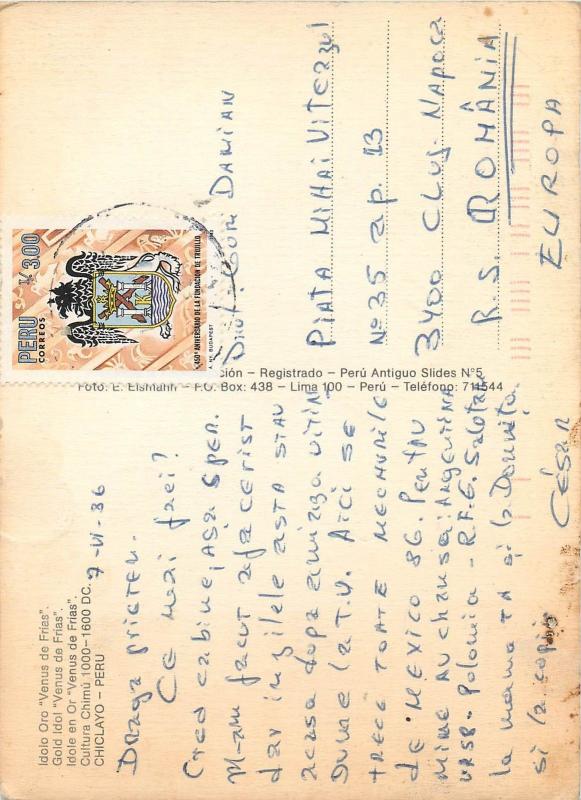 Idolo Oro "Venus de Frías".
Gold Idol "Venus de Frías".
Idole en Or "Venus de Frías".
Cultura Chimú 1000-1600 DC.
CHICLAYO - PERU
7-VI-86
DRaga prieten.
Ce mai faci?
Cred ca bine, Așa sper.
M-am facut afacerist
dar in zilele asta stau
acasa dupa amiaza uitin
Dume la T.V. Aici se
trece toate mechurile
de MEXICO 86. Pentru
mine au chansa: ARgentina
URSS - Polonia - R.F.G. Salutari
la mama ta și la Domnița
si la copii
CÉSAR
ción – Registrado – Perú Antiguo Slides N°5
Foto: E. Eismann – P.O. Box: 438 – Lima 100 – Perú – Teléfono: 711544
PERU
CORREOS
I/. 3.00
450° ANIVERSARIO DE LA FUNDACION DE TRUJILLO
A. NY. BUDAPEST
DAMIAN
PIATA MIHAI VITEAZUL
N° 35 ap. 13
3400 CLUJ-NAPOCA
R.S. ROMÂNIA
EUROPA